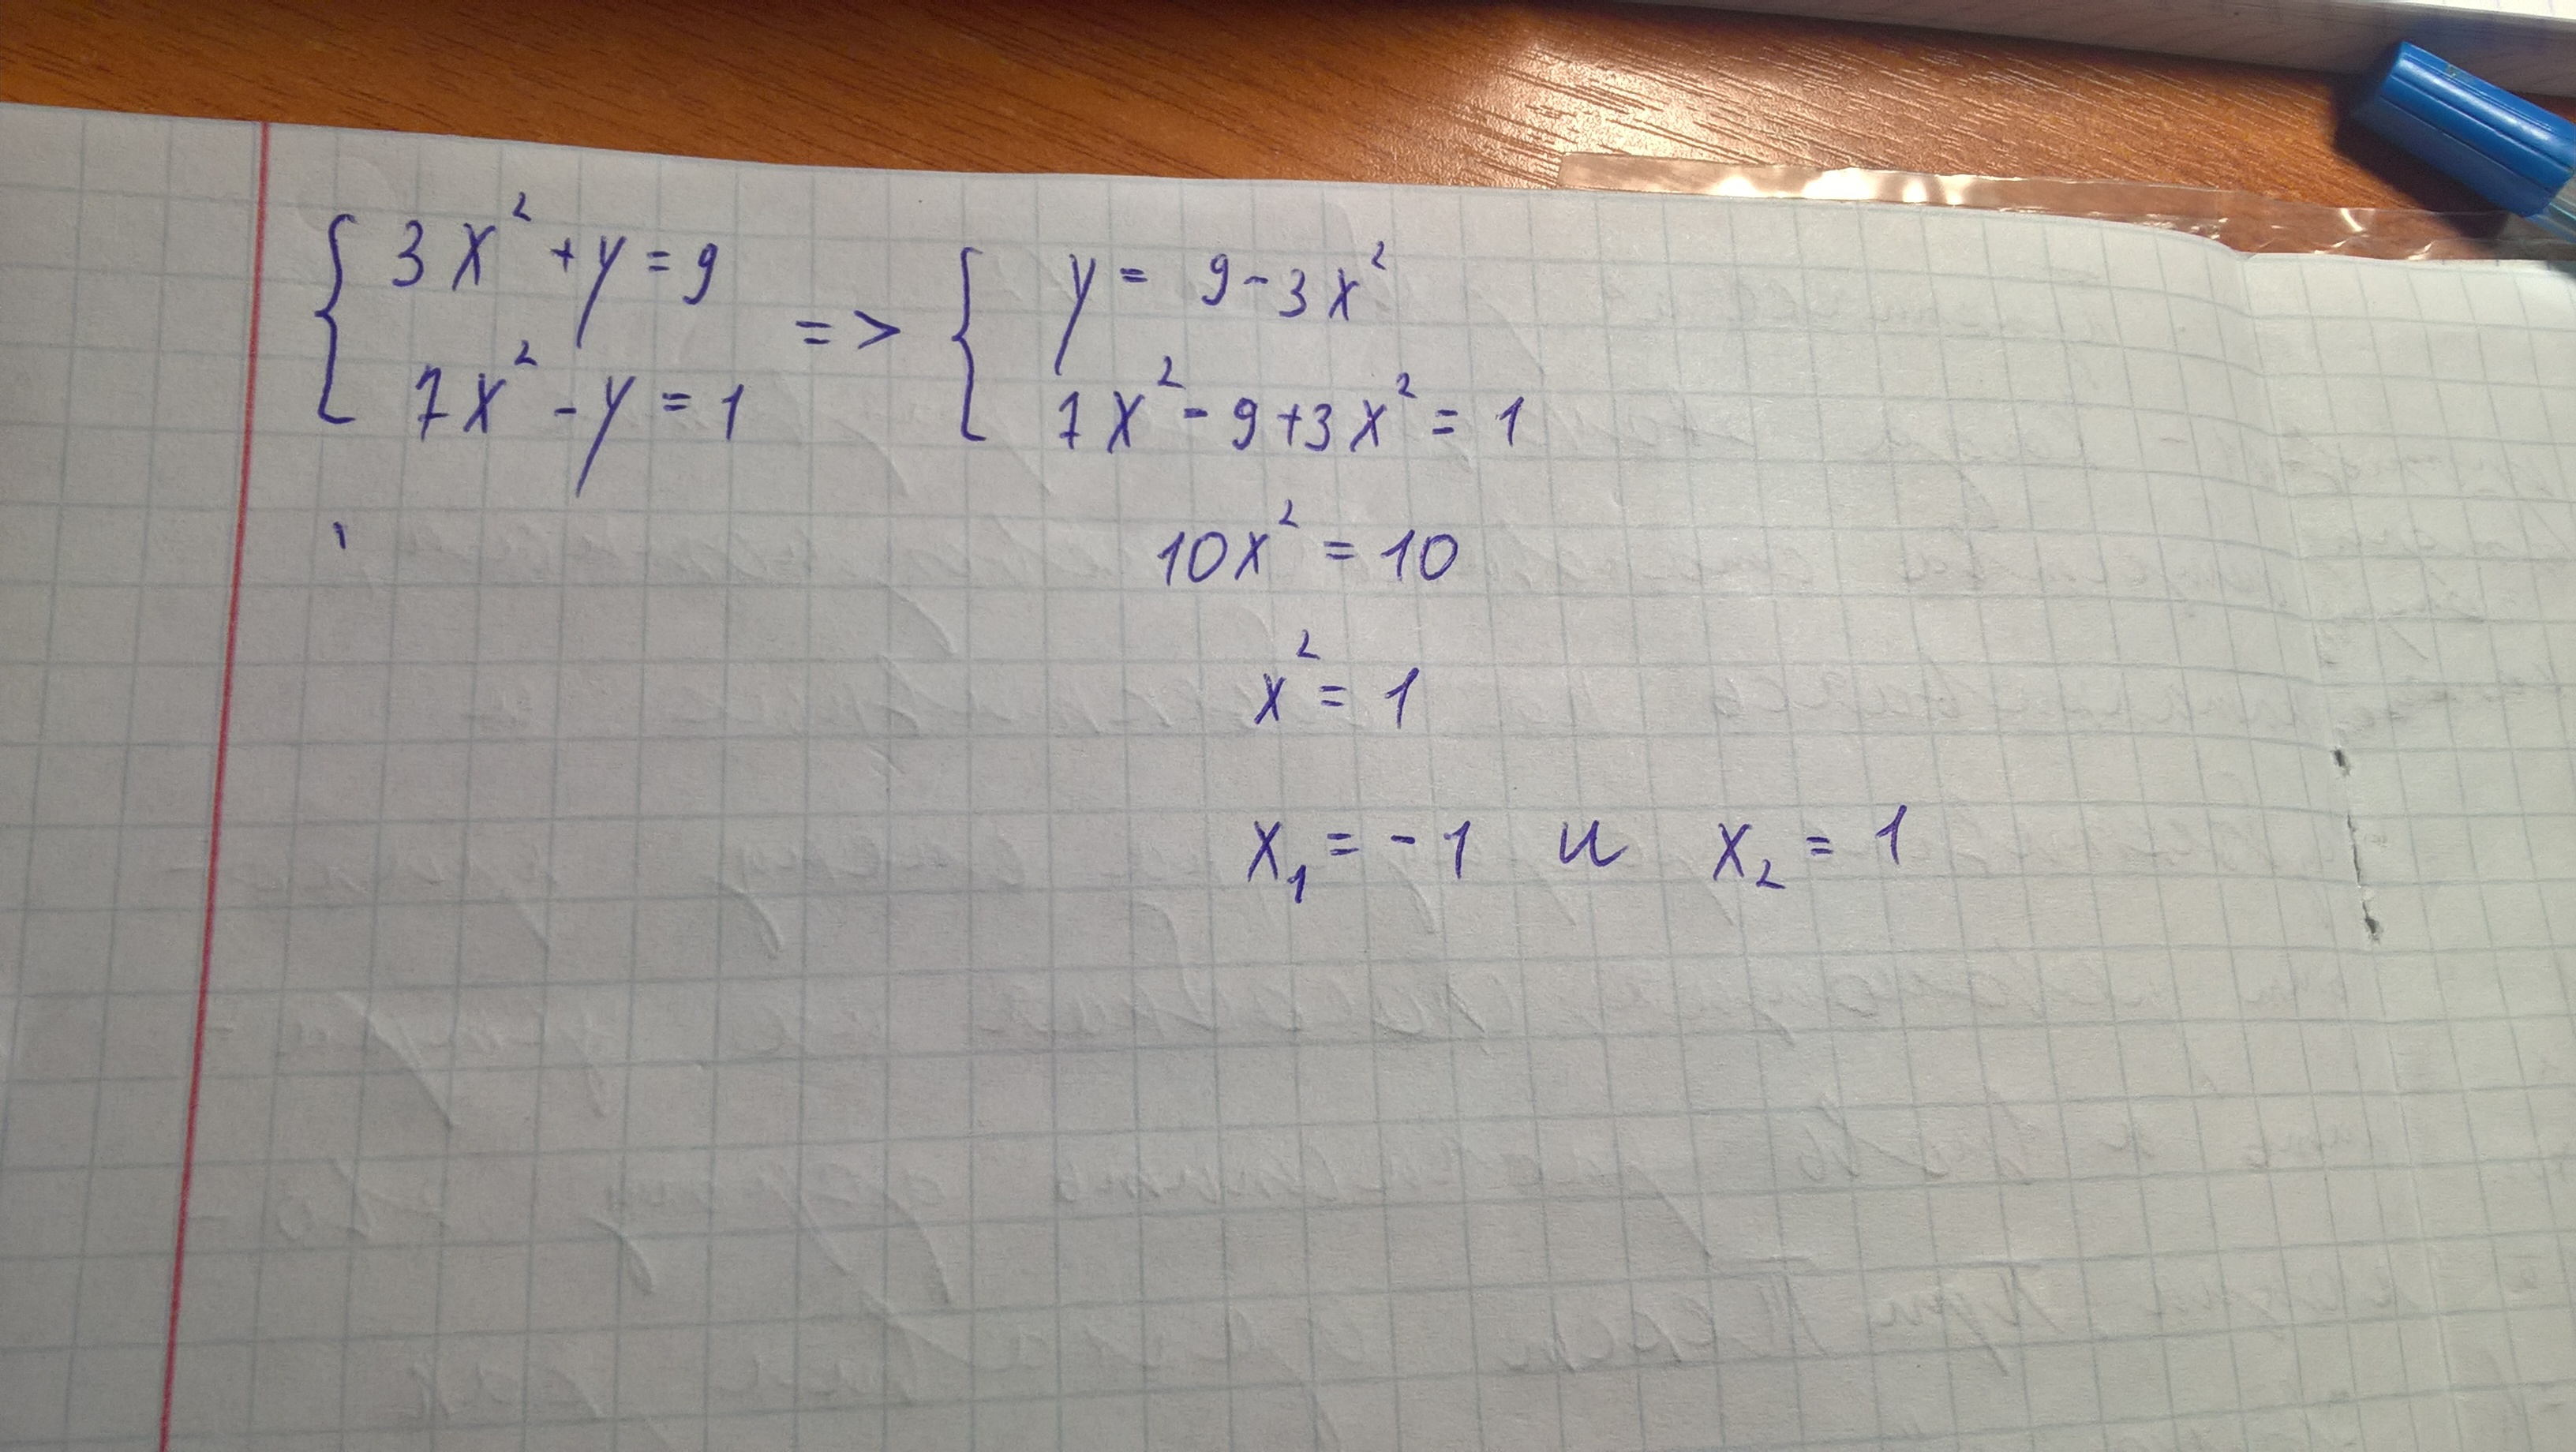 { 3x² + y = 9
7x² - y = 1
=> { y = 9 - 3x²
7x² - 9 + 3x² = 1
10x² = 10
x² = 1
x₁ = -1 и x₂ = 1